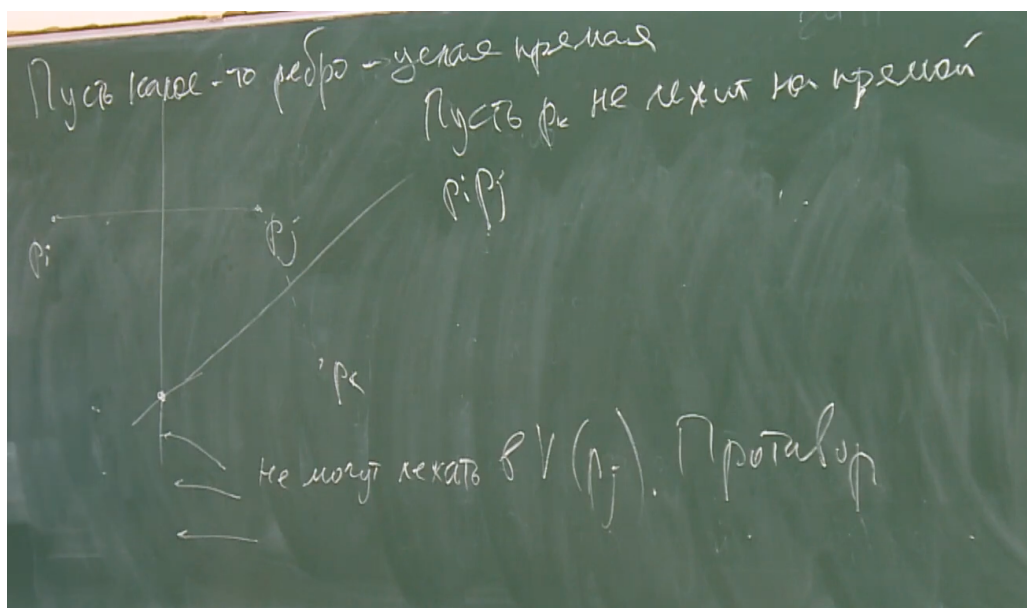 Пусть какое-то ребро - целая прямая
Пусть pₖ не лежит на прямой
pipj
pi
pj
pₖ
не могут лежать в V(pj). Противор